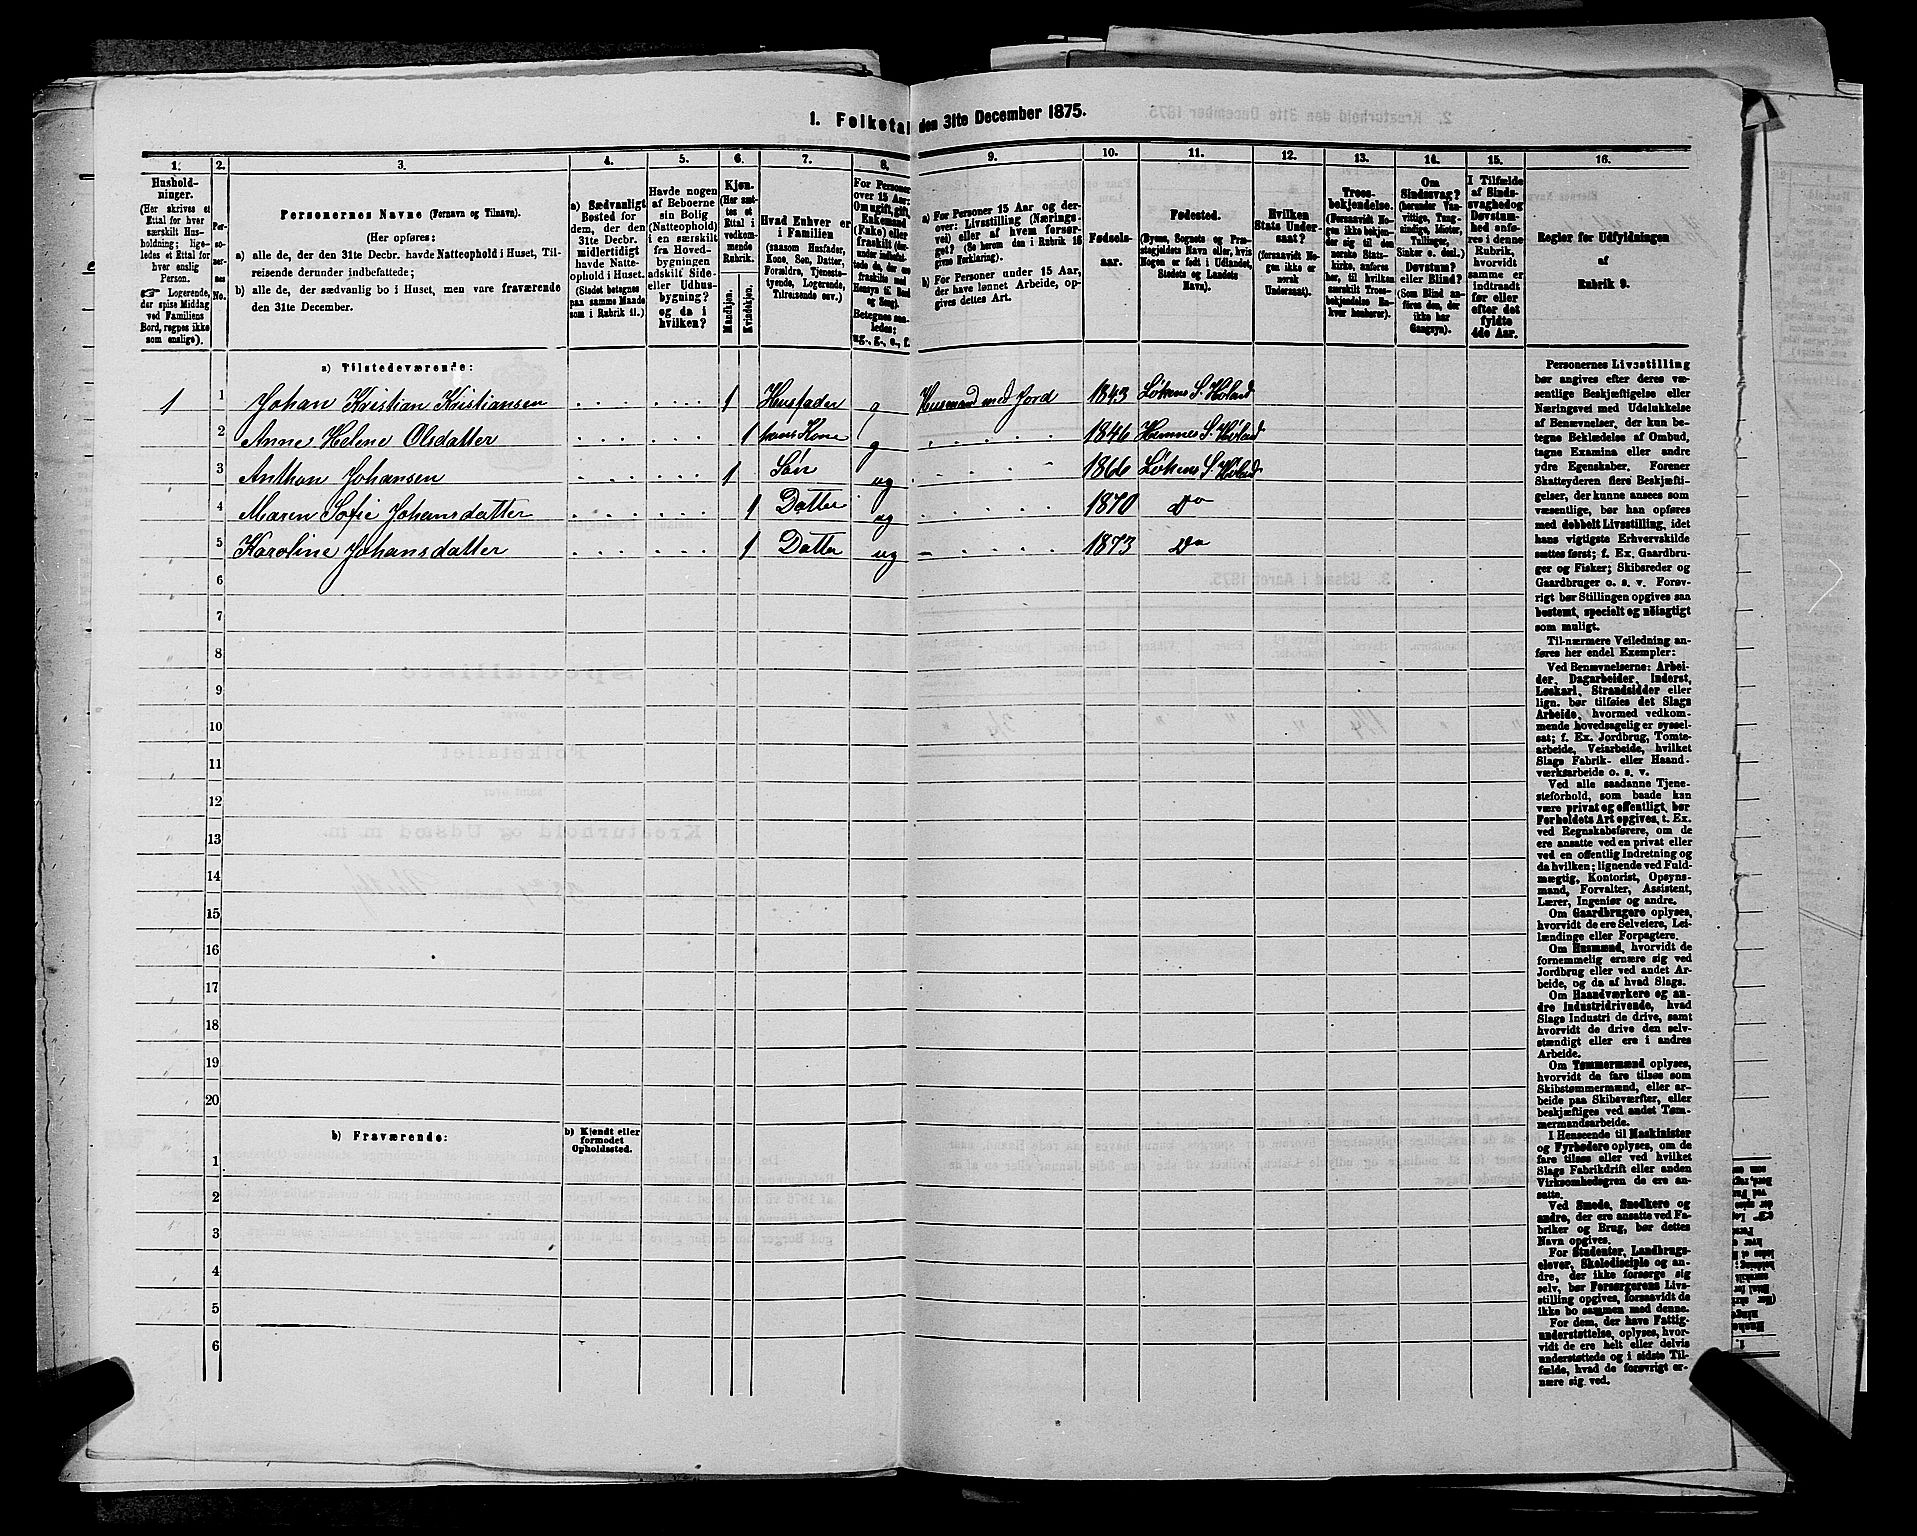 1. Folketal den 31te December 1875.
1. 2. 3. 4. 5. 6. 7. 8. 9. 10. 11. 12. 13. 14. 15. 16.
Hushold-
ninger.
(Her skrives et
Ettal for hver
særskilt Hus-
holdning; lige-
ledes et Ettal for
hver enslig
Person.
☞ Logerende,
der spise Middag
ved Familiens
Bord, regnes ikke
som enslige).
Per-
so-
ner-
nes
No.
Personernes Navne (Fornavn og Tilnavn).
(Her opføres:
a) alle de, der den 31te Decbr. havde Natteophold i Huset, Til-
reisende derunder indbefattede;
b) alle de, der sædvanlig bo i Huset, men vare fraværende
den 31te December.
a) Sædvanligt
Bosted for
dem, der den
31te Decbr.
midlertidigt
havde Natte-
ophold i Huset.
(Stedet betegnes
paa samme Maade
som i Rubrik 11.)
Havde nogen
af Beboerne
sin Bolig
(Natteophold)
i en særskilt
fra Hoved-
bygningen
adskilt Side-
eller Udhus-
bygning?
og da i
hvilken?
Kjøn.
(Her sæt-
tes et
Ettal i
vedkom-
mende
Rubrik.
Mandkjøn.
Kvindekjøn.
Hvad Enhver er
i Familien
(saasom Husfader,
Kone, Søn, Datter,
Forældre, Tjeneste-
tyende, Logerende,
Tilreisende osv.)
For Personer
over 15 Aar:
Om ugift, gift,
Enkemand
(Enke) eller
fraskilt (der-
under indbefat-
tede de, der ere
fraskilte med
Hensyn til Bord
og Seng).
Betegnes saa-
ledes:
ug., g., e., f.
a) For Personer 15 Aar og der-
over: Livsstilling (Nærings-
vei) eller af hvem forsør-
get? (Se herom den i Rubrik 16
givne Forklaring).
b) For Personer under 15 Aar,
der have lønnet Arbeide, op-
gives dettes Art.
Fødsels-
aar.
Fødested.
(Byens, Sognets og Præ-
stegjeldets Navn eller, hvis
Nogen er født i Udlandet,
Stedets og Landets
Navn).
Hvilken
Stats Under-
saat?
(forsaavidt No-
gen ikke er
norsk
Undersaat).
Troes-
bekjendelse.
(Forsaavidt No-
gen ikke bekjen-
der sig til den
norske Stats-
kirke, anføres
her, til hvilken
særskilt Troes-
bekjendelse En-
hver henhører).
Om
Sindssvag?
(herunder Van-
vittige, Tung-
sindige, Idioter,
Tullinger,
Sinker o. desl.)
Døvstum?
eller Blind?
(Som Blind an-
føres den, der
ikke har
Gangsyn).
I Tilfælde
af Sinds-
svaghed og
Døvstum-
hed anfø-
res i denne
Rubrik,
hvorvidt
samme er
indtraadt
før eller
efter det
fyldte
4de Aar.
Regler for Udfyldningen
af
Rubrik 9.
a) Tilstedeværende:
1 1 Johan Kristian Kristiansen 1 Husfader g Husmand med Jord 1843 Løkens S. Høland
2 Anne Helene Olsdatter 1 hans Kone g 1846 Hemnes S. Høland
3 Anthon Johansen 1 Søn ug 1866 Løkens S. Høland
4 Maren Sofie Johansdatter 1 Datter ug 1870 Do
5 Karoline Johansdatter 1 Datter ug 1873 Do
6
7
8
9
10
11
12
13
14
15
16
17
18
19
20
b) Fraværende:
b) Kjendt eller
formodet
Opholdssted.
1
2
3
4
5
6
Personernes Livsstilling
bør angives efter deres væ-
sentlige Beskjæftigelse eller
Næringsvei med Udelukkelse
af Benævnelser, der kun be-
tegne Beklædelse af Ombud,
tagne Examina eller andre
ydre Egenskaber. Forener
Skatteyderen flere Beskjæfti-
gelser, der kunne ansees som
væsentlige, bør han opføres
med dobbelt Livsstilling, idet
hans vigtigste Erhvervskilde
sættes først; f. Ex. Gaardbru-
ger og Fisker; Skibsreder og
Gaardbruger o. s. v. Forøv-
rigt bør Stillingen opgives saa
bestemt, specielt og nøiagtigt
som muligt.
Til nærmere Veiledning an-
føres her endel Exempler:
Ved Benævnelserne: Arbei-
der, Dagarbeider, Inderst,
Løskarl, Strandsidder eller
lign. bør tilføies det Slags
Arbeide, hvormed vedkom-
mende hovedsagelig er syssel-
sat; f. Ex. Jordbrug, Tomte-
arbeide, Veiarbeide, hvilket
Slags Fabrik- eller Haand-
værksarbeide o. s. v.
Ved alle saadanne Tjene-
steforhold, som baade kan
være privat og offentligt, bør
Forholdets Art opgives, t. Ex.
ved Regnskabsførere, om de
ere ansatte ved en privat eller
ved en offentlig Indretning og
da hvilken; lignende ved Fuld-
mægtig, Kontorist, Opsyns-
mand, Forvalter, Assistent,
Lærer, Ingeniør og andre.
Om Gaardbrugere oplyses,
hvorvidt de ere Selveiere, Lei-
lændinge eller Forpagtere.
Om Husmænd, hvorvidt de
fornemmelig ernære sig ved
Jordbrug eller ved andet Ar-
beide, og da af hvad Slags.
Om Haandværkere og an-
dre Industridrivende, hvad
Slags Industri de drive, samt
hvorvidt de drive den selv-
stændigt eller ere i andres
Arbeide.
Om Tømmermænd oplyses,
hvorvidt de fare tilsøs som
Skibstømmermænd, eller ar-
beide paa Skibsværfter, eller
beskjæftiges ved andet Tøm-
mermandsarbeide.
I Henseende til Maskinister
og Fyrbødere oplyses, om de
fare tilsøs eller ved hvilket
Slags Fabrikdrift eller anden
Virksomhedsgren de ere an-
satte.
Ved Smede, Snedkere og
andre, der ere ansatte ved Fa-
briker og Brug, bør dettes
Navn opgives.
For Studenter, Landbrugs-
elever, Skoledisciple og an-
dre, der ikke forsørge sig
selv, bør Forsørgerens Livs-
stilling opgives, forsaavidt de
ikke bo sammen med denne.
For dem, der have Fattig-
understøttelse, oplyses, hvor-
vidt de ere helt eller delvis
understøttede og i sidste Til-
fælde, hvad de forøvrigt er-
nære sig ved.